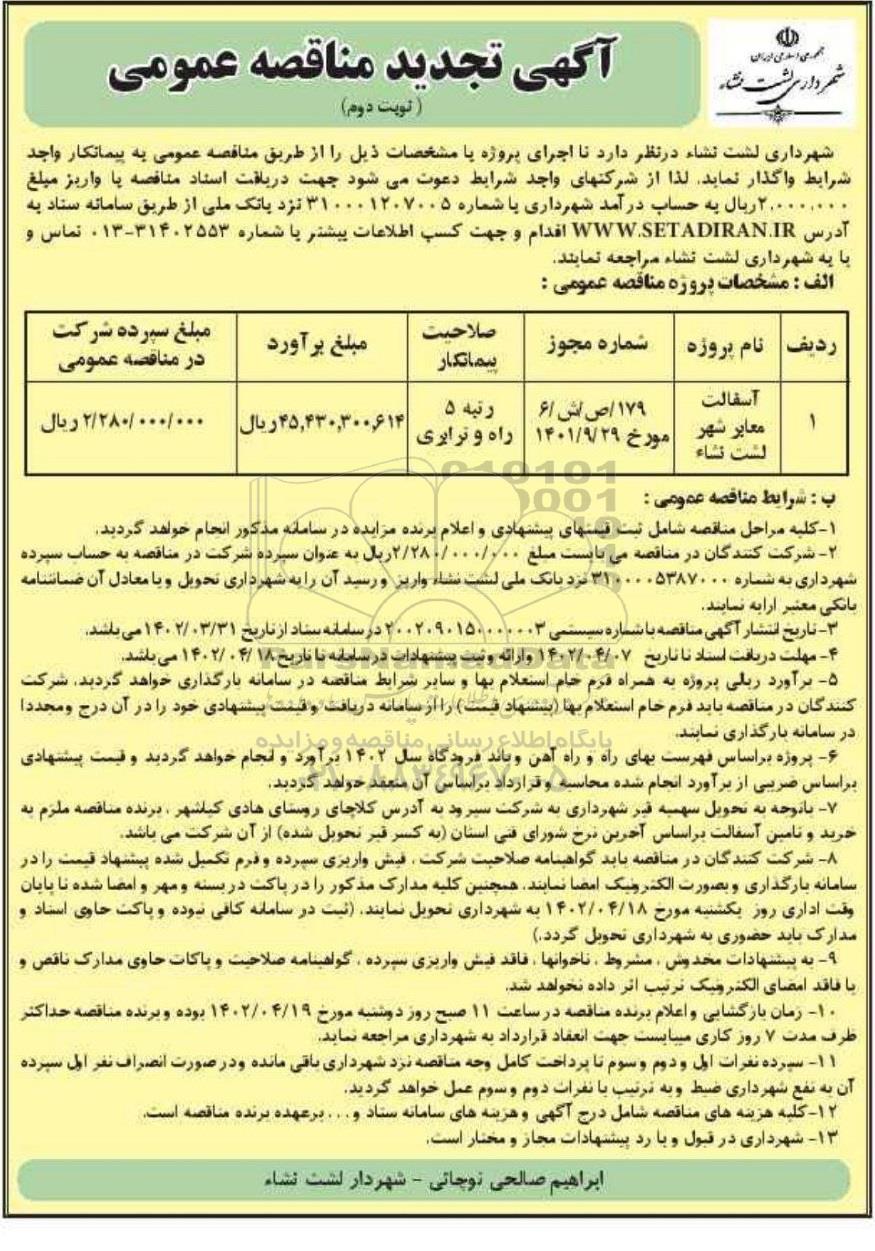 جمهوری اسلامی ایران
شهرداری لشت نشاء
آگهی تجدید مناقصه عمومی
( نوبت دوم)
شهرداری لشت نشاء درنظر دارد تا اجرای پروژه با مشخصات ذیل را از طریق مناقصه عمومی به پیمانکار واجد
شرایط واگذار نماید. لذا از شرکتهای واجد شرایط دعوت می شود جهت دریافت اسناد مناقصه با واریز مبلغ
۲،۰۰۰،۰۰۰ریال به حساب درآمد شهرداری با شماره ۳۱۰۰۰۱۲۰۷۰۰۵ نزد بانک ملی از طریق سامانه ستاد به
آدرس WWW.SETADIRAN.IR اقدام و جهت کسب اطلاعات بیشتر با شماره ۳۱۴۰۲۵۵۳-۰۱۳ تماس و
یا به شهرداری لشت نشاء مراجعه نمایند.
الف : مشخصات پروژه مناقصه عمومی :
ردیف نام پروژه شماره مجوز صلاحیت پیمانکار مبلغ برآورد مبلغ سپرده شرکت در مناقصه عمومی
۱ آسفالت معابر شهر لشت نشاء ۱۷۹/ص/ش/۶ مورخ ۱۴۰۱/۹/۲۹ رتبه ۵ راه و ترابری ۴۵,۴۳۰,۳۰۰,۶۱۴ریال ۲/۲۸۰/۰۰۰/۰۰۰ ریال
ب : شرایط مناقصه عمومی :
۱-کلیه مراحل مناقصه شامل ثبت قیمتهای پیشنهادی و اعلام برنده مزایده در سامانه مذکور انجام خواهد گردید.
۲- شرکت کنندگان در مناقصه می بایست مبلغ ۲/۲۸۰/۰۰۰/۰۰۰ریال به عنوان سپرده شرکت در مناقصه به حساب سپرده
شهرداری به شماره ۳۱۰۰۰۰۵۳۸۷۰۰۰ نزد بانک ملی لشت نشاء واریز و رسید آن را به شهرداری تحویل و یا معادل آن ضمانتنامه
بانکی معتبر ارایه نمایند.
۳- تاریخ انتشار آگهی مناقصه با شماره سیستمی ۲۰۰۲۰۹۰۱۵۰۰۰۰۰۳ در سامانه ستاد از تاریخ ۱۴۰۲/۰۳/۳۱ می باشد.
۴- مهلت دریافت اسناد تا تاریخ ۱۴۰۲/۰۴/۰۷ و ارائه و ثبت پیشنهادات در سامانه تا تاریخ ۱۴۰۲/۰۴/۱۸ می باشد.
۵- برآورد ریلی پروژه به همراه فرم خام استعلام بها و سایر شرایط مناقصه در سامانه بارگذاری خواهد گردید. شرکت
کنندگان در مناقصه باید فرم خام استعلام بها (پیشنهاد قیمت) را از سامانه دریافت و قیمت پیشنهادی خود را در آن درج و مجددا
در سامانه بارگذاری نمایند.
۶- پروژه براساس فهرست بهای راه و راه آهن و باند فرودگاه سال ۱۴۰۲ برآورد و انجام خواهد گردید و قیمت پیشنهادی
براساس ضریبی از برآورد انجام شده محاسبه و قرارداد براساس آن منعقد خواهد گردید.
۷- باتوجه به تحویل سهمیه قیر شهرداری به شرکت سپرود به آدرس کلاچای روستای هادی کیاشهر ، برنده مناقصه ملزم به
خرید و تامین آسفالت براساس آخرین نرخ شورای فنی استان (به کسر قیر تحویل شده) از آن شرکت می باشد.
۸- شرکت کنندگان در مناقصه باید گواهینامه صلاحیت شرکت ، فیش واریزی سپرده و فرم تکمیل شده پیشنهاد قیمت را در
سامانه بارگذاری و بصورت الکترونیک امضا نمایند. همچنین کلیه مدارک مذکور را در پاکت دربسته و مهر و امضا شده تا پایان
وقت اداری روز یکشنبه مورخ ۱۴۰۲/۰۴/۱۸ به شهرداری تحویل نمایند. (ثبت در سامانه کافی نبوده و پاکت حاوی اسناد و
مدارک باید حضوری به شهرداری تحویل گردد.)
۹- به پیشنهادات مخدوش ، مشروط ، ناخوانها ، فاقد فیش واریزی سپرده ، گواهینامه صلاحیت و پاکات حاوی مدارک ناقص و
یا فاقد امضای الکترونیک ترتیب اثر داده نخواهد شد.
۱۰- زمان بازگشایی و اعلام برنده مناقصه در ساعت ۱۱ صبح روز دوشنبه مورخ ۱۴۰۲/۰۴/۱۹ بوده و برنده مناقصه حداکثر
ظرف مدت ۷ روز کاری میبایست جهت انعقاد قرارداد به شهرداری مراجعه نماید.
۱۱- سپرده نفرات اول و دوم و سوم تا پرداخت کامل وجه مناقصه نزد شهرداری باقی مانده و در صورت انصراف نفر اول سپرده
آن به نفع شهرداری ضبط و به ترتیب با نفرات دوم و سوم عمل خواهد گردید.
۱۲-کلیه هزینه های مناقصه شامل درج آگهی و هزینه های سامانه ستاد و... برعهده برنده مناقصه است.
۱۳- شهرداری در قبول و یا رد پیشنهادات مجاز و مختار است.
ابراهیم صالحی نوچائی - شهردار لشت نشاء
پایگاه اطلاع رسانی مناقصه و مزایده